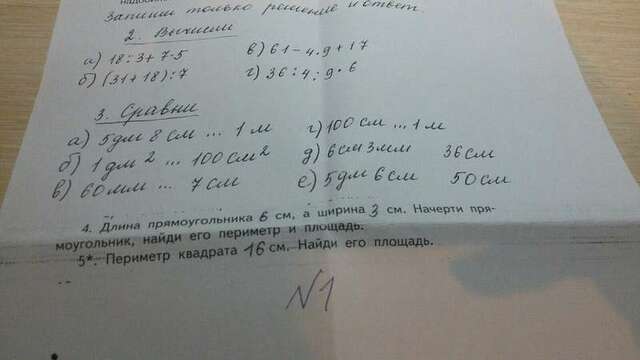 Запиши только решение и ответ
2. Вычисли
а) 18:3+7·5 в) 61-4·9+17
б) (31+18):7 г) 36:4:9·6
3. Сравни
а) 5дм 8см ... 1м г) 100см ... 1м
б) 1дм² ... 100см² д) 6см 3мм 36см
в) 60мм ... 7см е) 5дм 6см 50см
4. Длина прямоугольника 6 см, а ширина 3 см. Начерти пря-
моугольник, найди его периметр и площадь.
5*. Периметр квадрата 16 см. Найди его площадь.
№1